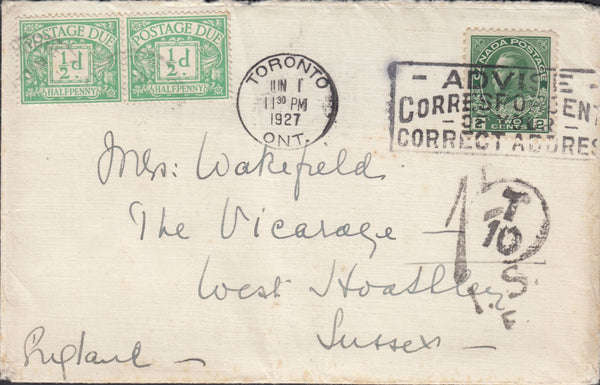 POSTAGE DUE
½d
HALFPENNY
POSTAGE DUE
½d
HALFPENNY
TORONTO
JUN 1
11 30 PM
1927
ONT.
CANADA POSTAGE
2 CENTS 2
- ADVISE -
CORRESPONDENT
CORRECT ADDRES
Mrs: Wakefield
The Vicarage -
West Hoathley
Sussex -
England -
1D
T
10
S.E